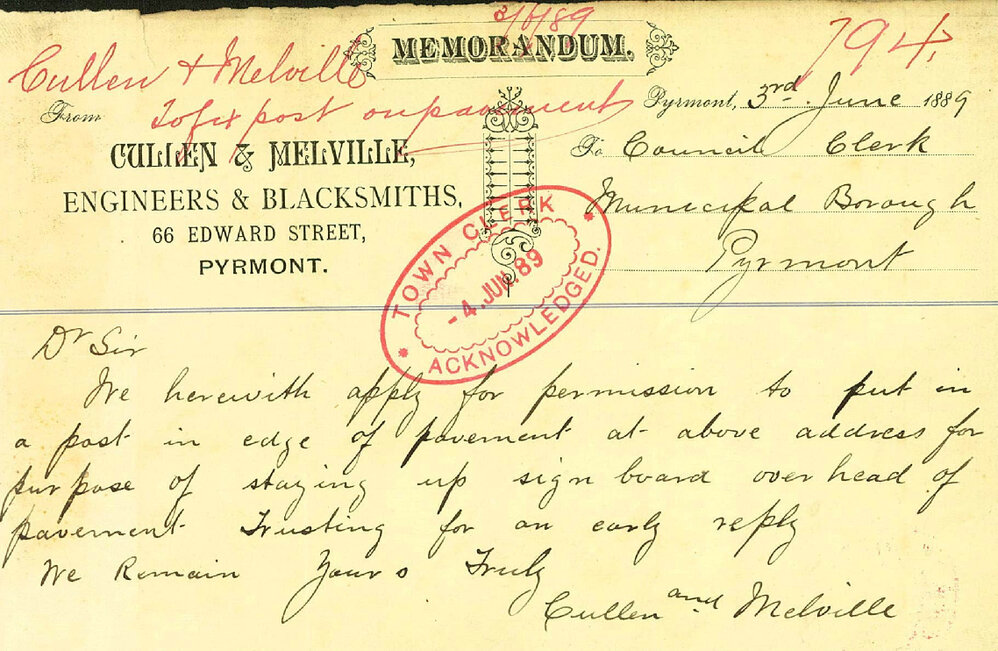 3/6/89
MEMORANDUM.
794
Cullen & Melville
To fix post on pavement
From
CULLEN & MELVILLE,
ENGINEERS & BLACKSMITHS,
66 EDWARD STREET,
PYRMONT.
Pyrmont, 3rd June 1889
To Council Clerk
Municipal Borough
Pyrmont
TOWN CLERK
- 4. JUN. 89
ACKNOWLEDGED.
Dr Sir
We herewith apply for permission to put in
a post in edge of pavement at above address for
purpose of staying up sign board over head of
pavement Trusting for an early reply
We Remain Yours Truly
Cullen and Melville